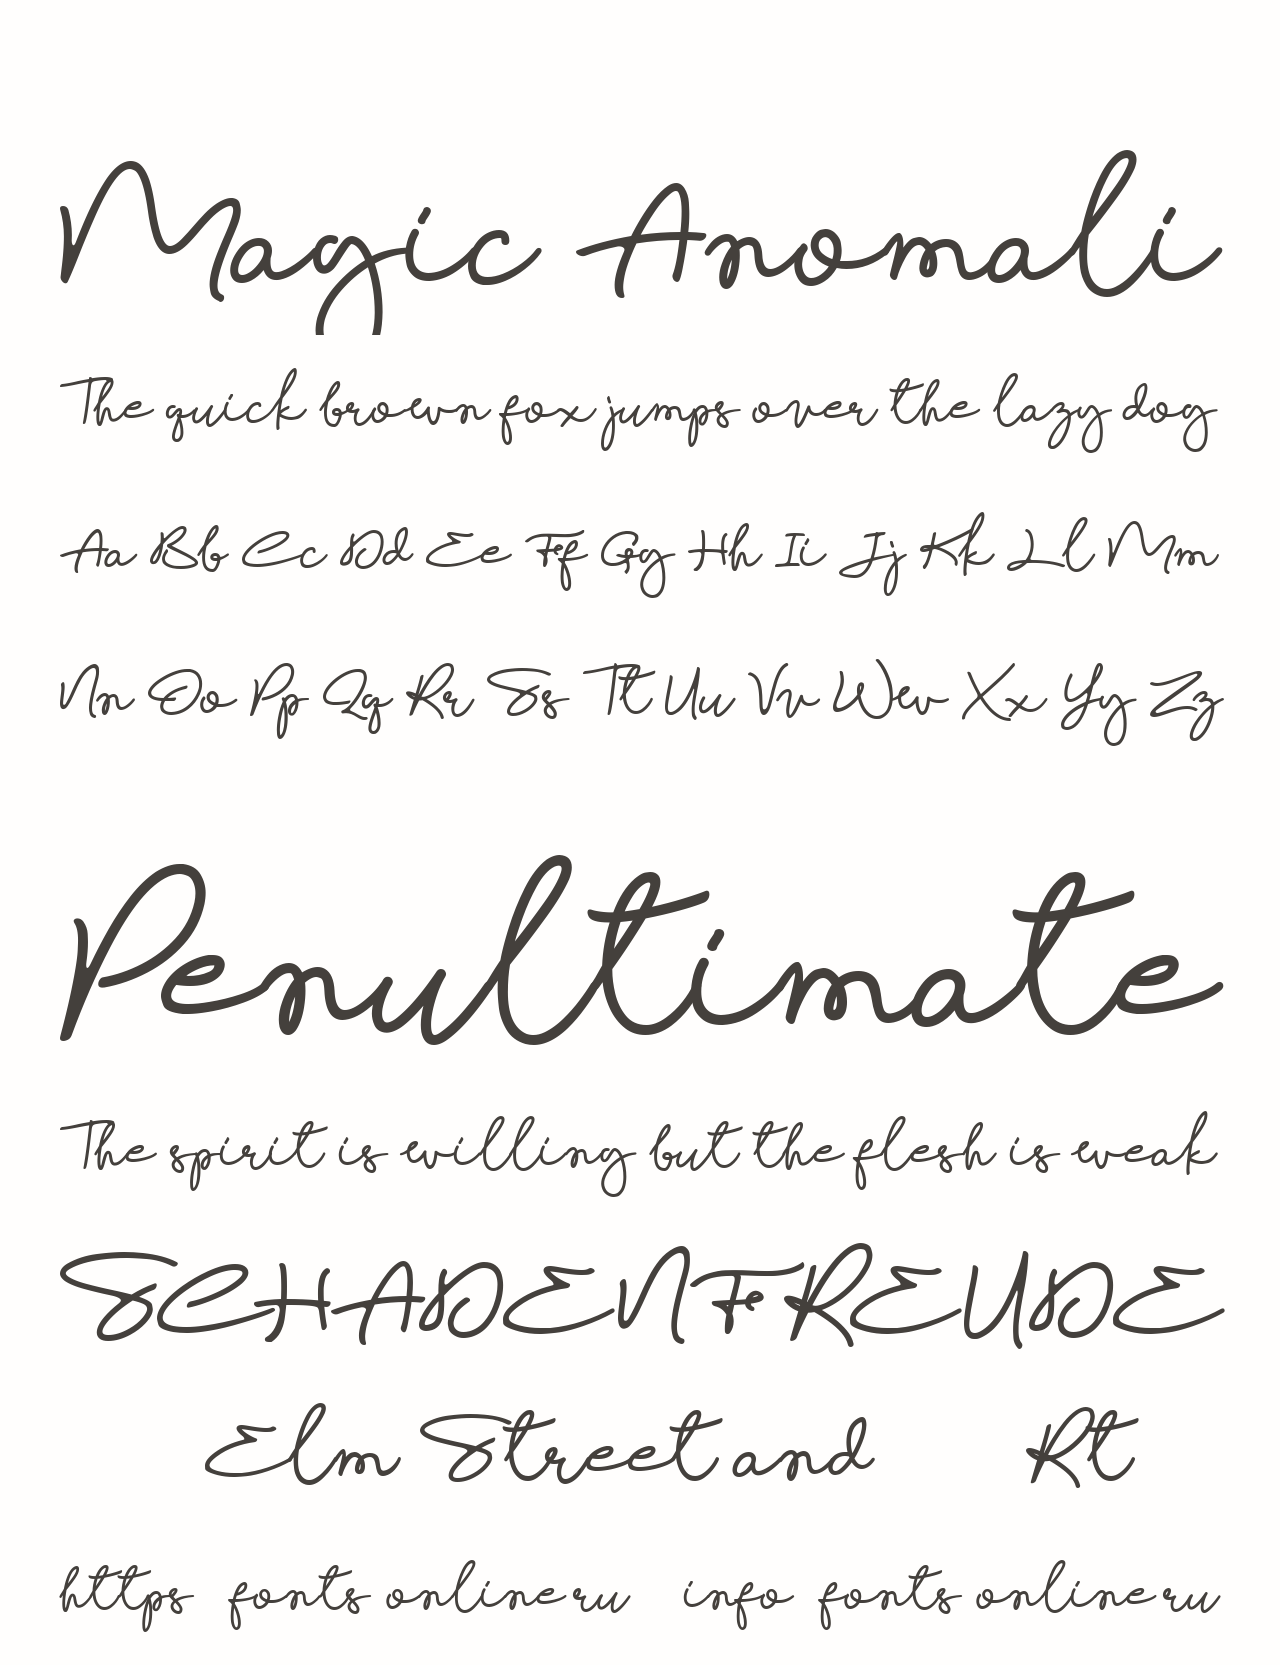 Magic Anomali
The quick brown fox jumps over the lazy dog
Aa Bb Cc Dd Ee Ff Gg Hh Ii Jj Kk Ll Mm
Nn Oo Pp Qq Rr Ss Tt Uu Vv Ww Xx Yy Zz
Penultimate
The spirit is willing but the flesh is weak
SCHADENFREUDE
Elm Street and Rt
https fonts online ru info fonts online ru